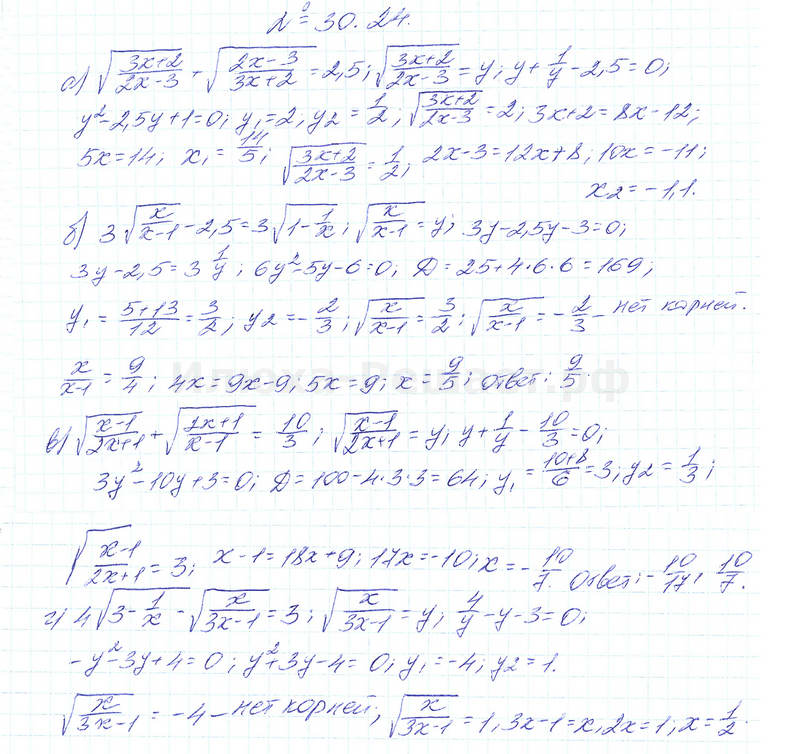 № 30.24.
а) √((3x+2)/(2x-3)) + √((2x-3)/(3x+2)) = 2,5; √((3x+2)/(2x-3)) = y; y + 1/y - 2,5 = 0;
y² - 2,5y + 1 = 0; y₁ = 2, y₂ = 1/2; √((3x+2)/(2x-3)) = 2; 3x+2 = 8x-12;
5x = 14; x₁ = 14/5; √((3x+2)/(2x-3)) = 1/2; 2x-3 = 12x+8; 10x = -11;
x₂ = -1,1.
б) 3√(x/(x-1)) - 2,5 = 3√(1 - 1/x); √(x/(x-1)) = y; 3y - 2,5y - 3 = 0;
3y - 2,5 = 3 1/y; 6y² - 5y - 6 = 0; D = 25 + 4·6·6 = 169;
y₁ = (5+13)/12 = 3/2; y₂ = -2/3; √(x/(x-1)) = 3/2; √(x/(x-1)) = -2/3 - нет корней.
x/(x-1) = 9/4; 4x = 9x-9; 5x = 9; x = 9/5; ответ: 9/5.
в) √((x-1)/(2x+1)) + √((2x+1)/(x-1)) = 10/3; √((x-1)/(2x+1)) = y; y + 1/y - 10/3 = 0;
3y² - 10y + 3 = 0; D = 100 - 4·3·3 = 64; y₁ = (10+8)/6 = 3; y₂ = 1/3;
√((x-1)/(2x+1)) = 3; x-1 = 18x+9; 17x = -10; x = -10/7. Ответ: -10/17; 10/7.
г) 4√(3 - 1/x) - √(x/(3x-1)) = 3; √(x/(3x-1)) = y; 4/y - y - 3 = 0;
-y² - 3y + 4 = 0; y² + 3y - 4 = 0; y₁ = -4; y₂ = 1.
√(x/(3x-1)) = -4 - нет корней; √(x/(3x-1)) = 1, 3x-1 = x, 2x = 1; x = 1/2.